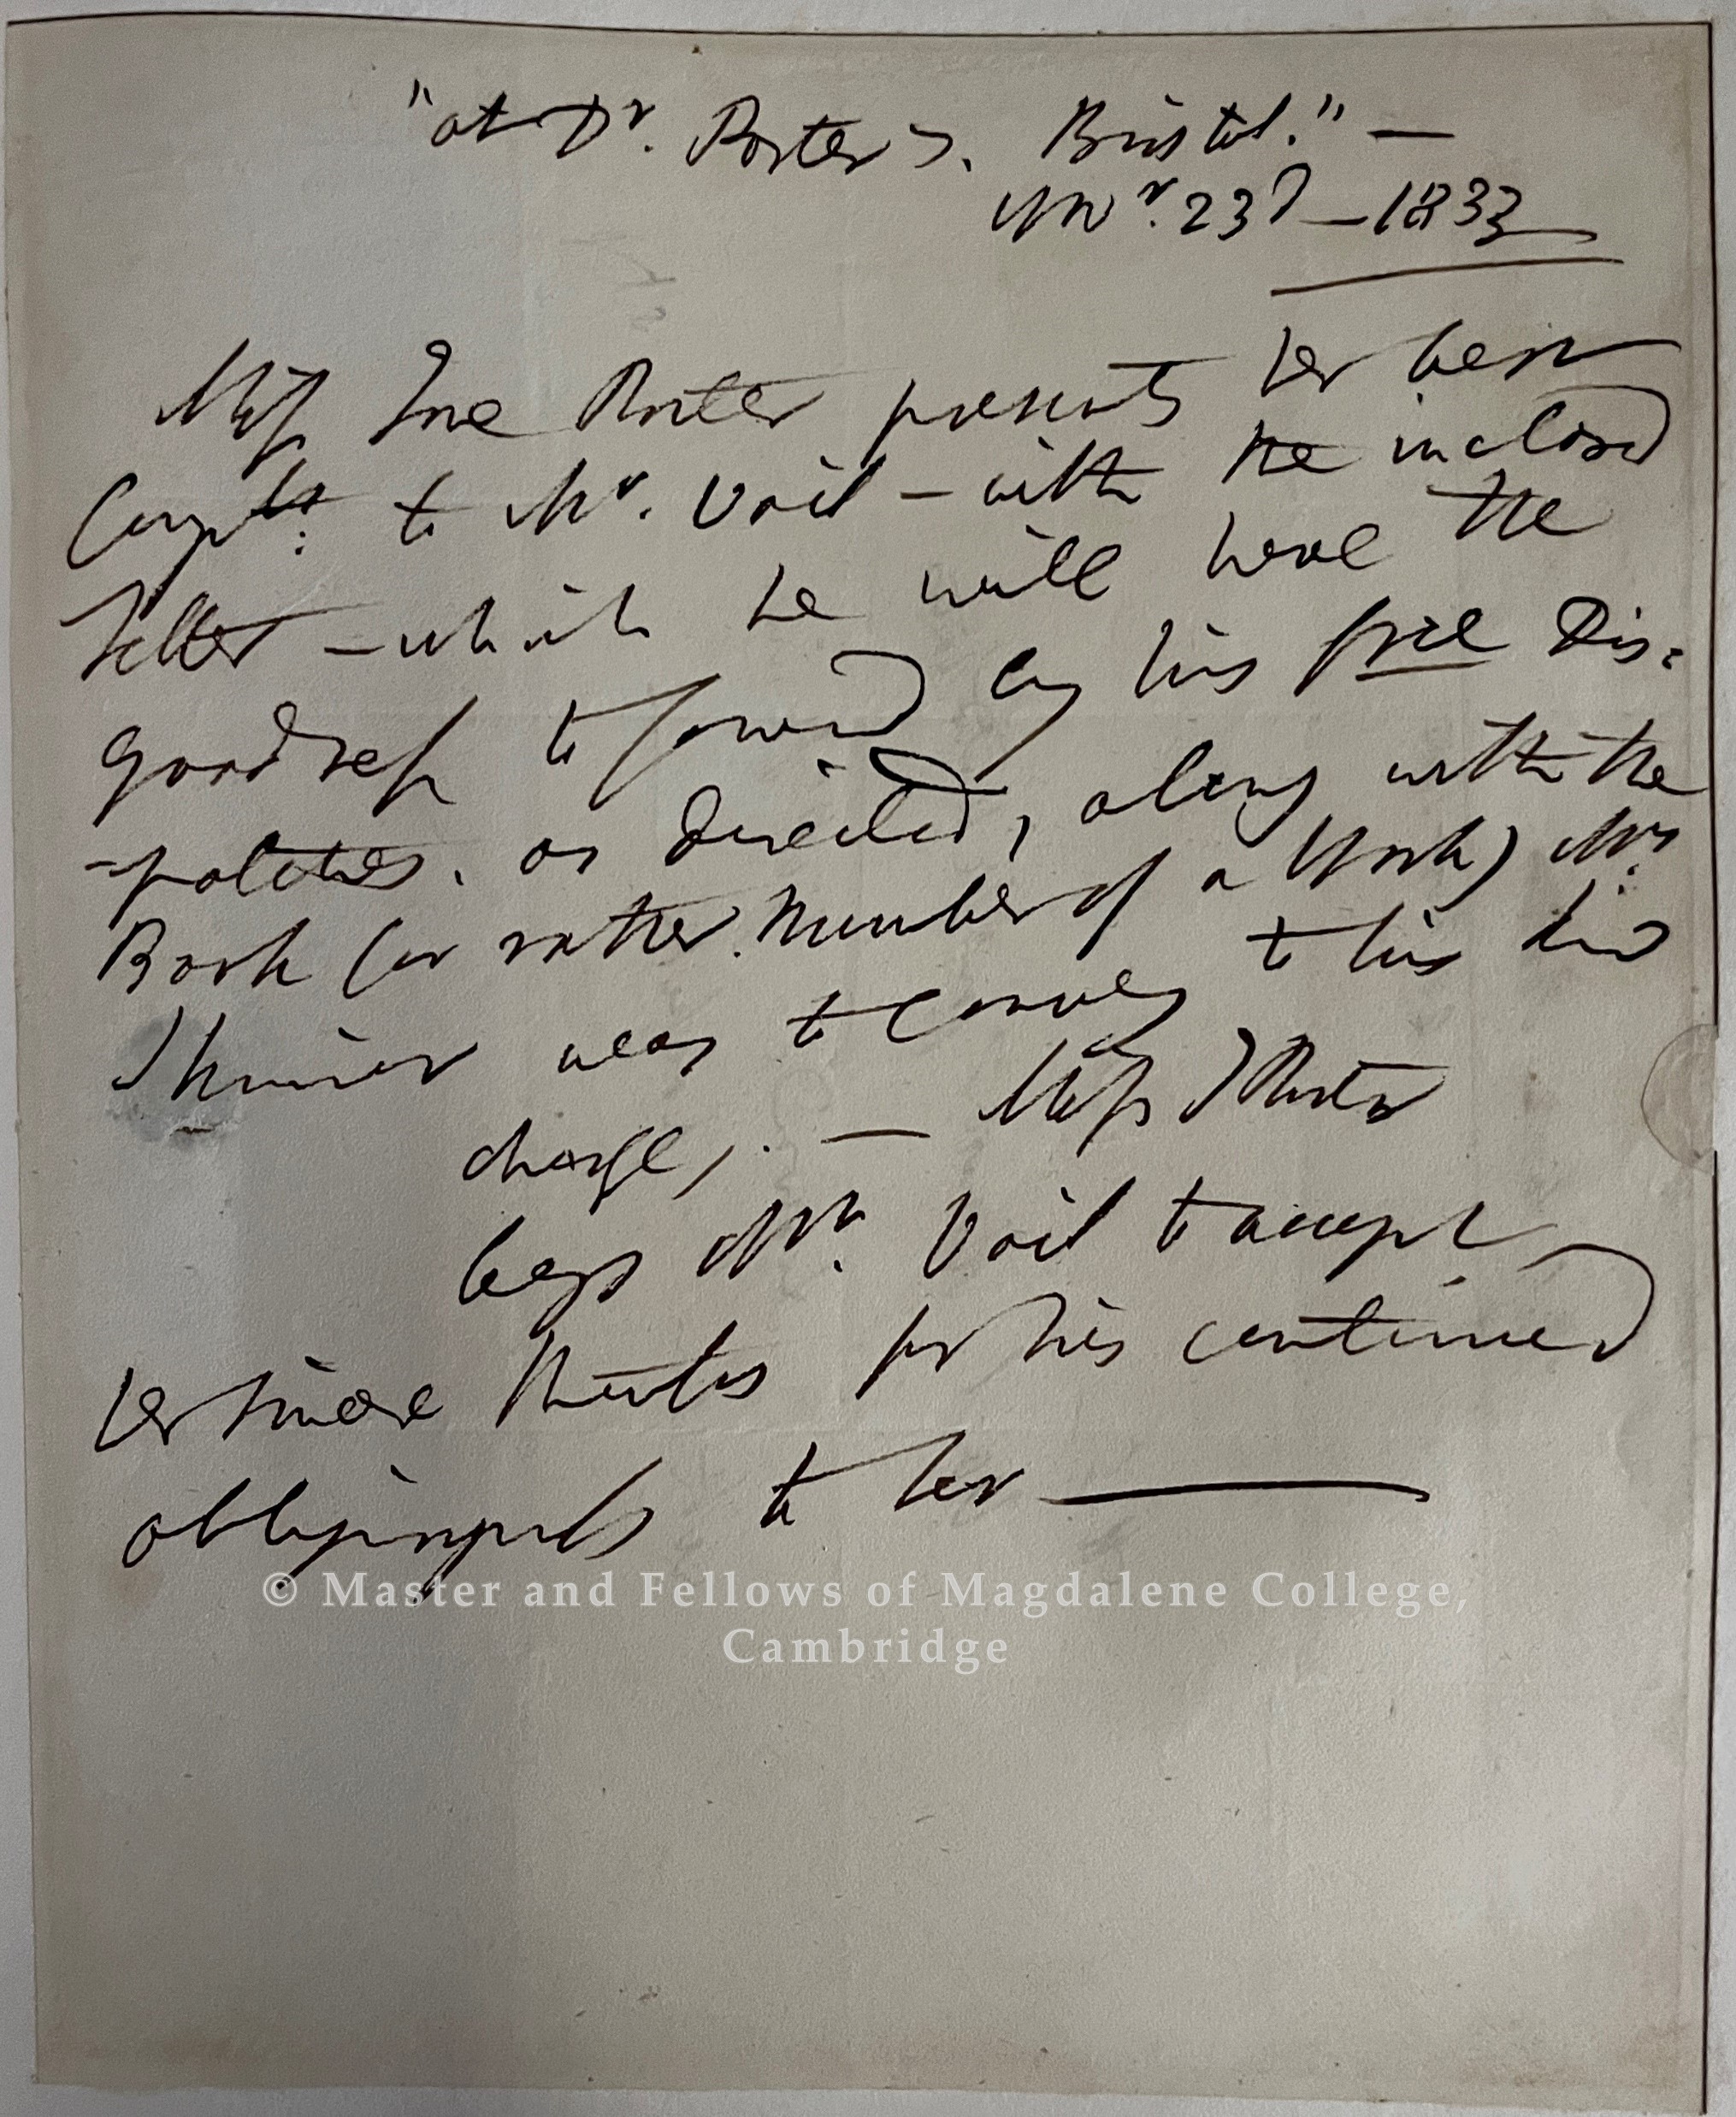 "at Dr. Porter's. Bristol." —
Novr. 23d — 1833
Miss Jane Porter presents her best
Complts: to Mr. Vail — with the inclosed
letter — which he will have the
goodness to forward by his free Dis-
-patches. as directed, along with the
Book (or rather Number of a Work) Mr:
was to convey to his kind
charge,. — Miss J Porter
begs Mr. Vail to accept
her sincere thanks for his continued
obligingness to her ———
© Master and Fellows of Magdalene College,
Cambridge